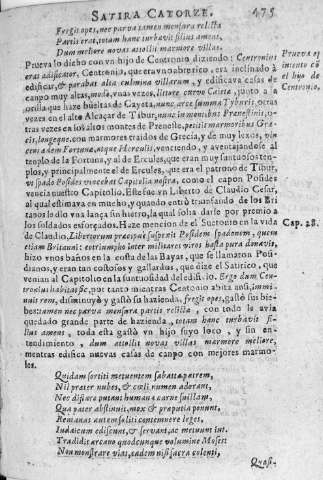 SATIRA CATORZE, 475
Fregit opes, nec parva tamen mensura relicta
Partis erat, totam hanc turbavit filius amens,
Dum meliore novas attollit marmore villas.
Prueva lo dicho con vn hijo de Centronio diziendo: Centronius
Prueva el
eras edificator, Centronio, que era vn pobreto, era inclinado a
edificar, & parabat alta culmina villarum, y edificava casas de
el hijo de
campo muy altas, modo, vnas vezes, littore curvo Caieta, junto a la
Centronio,
orilla que haze bueltas de Gayeta, nunc arce summa Tyburis, otras
vezes en el alto Alcaçar de Tibur, nunc in montibus Prenestinis, o-
tras vezes en los altos montes de Preneste,
con marmores traidos de Grecia, y de muy lexos, vin
cens adem Fortuna, atque Herculis, venciendo, y aventajandose al
templo de la Fortuna, y al de Ercules, que eran muy suntuosos tem-
plos, y principalmente el de Ercules, que era el patron de Tibur,
vt spado Posides vincebat Capitolia nostra, como el capon Posides
vencia nuestro Capitolio. Este fue vn Liberto de Claudio Cesar,
al qual estimava en mucho, y quando entrò triunfando de los Bri
tanos lo dio vna lança sin hierro, la qual solia darse por premio a
los soldados esforçados. Haze mencion de el Suetonio en la vida
Cap. 28.
de Claudio, Libertorum præcipuè suspexit Posidem spadonem, quem
etiam Britannico triumpho inter militares viros hasta pura donavit,
hizo vnos baños en la costa de las Bayas, que se llamaron Posi-
dianos, y eran tan costosos y gallardos, que dize el Satirico, que
venian al Capitolio en la suntuosidad del edificio. Ergo dum Cen-
tronius habitat sic, por tanto mientras Centonio abita assi, immi-
nuit rem, disminuyò y gastò su hazienda, fregit opes, gastò sus bie-
nes: tamen nec parva mensura partis relicta, con todo le avia
quedado grande parte de hazienda, totam hanc turbavit fi-
lius amens, toda esta gastò vn hijo suyo loco, y sin en-
tendimiento, dum attollit novas villas marmore meliore,
mientras edifica nuevas casas de campo con mejores marmo-
les.
Quidam sortiti metuentem sabatta patrem,
Nil præter nubes, & cœli numen adorant,
Nec distare putant humana carne suillam,
Qua pater abstinuit, mox & præputia ponunt,
Romanas autem soliti contemnere leges,
Iudaicum ediscunt, & servant, ac metuunt ius.
Tradidit arcano quodcunque volumine Moses:
Non monstrare vias, eadem nisi sacra colenti,
Quasi-